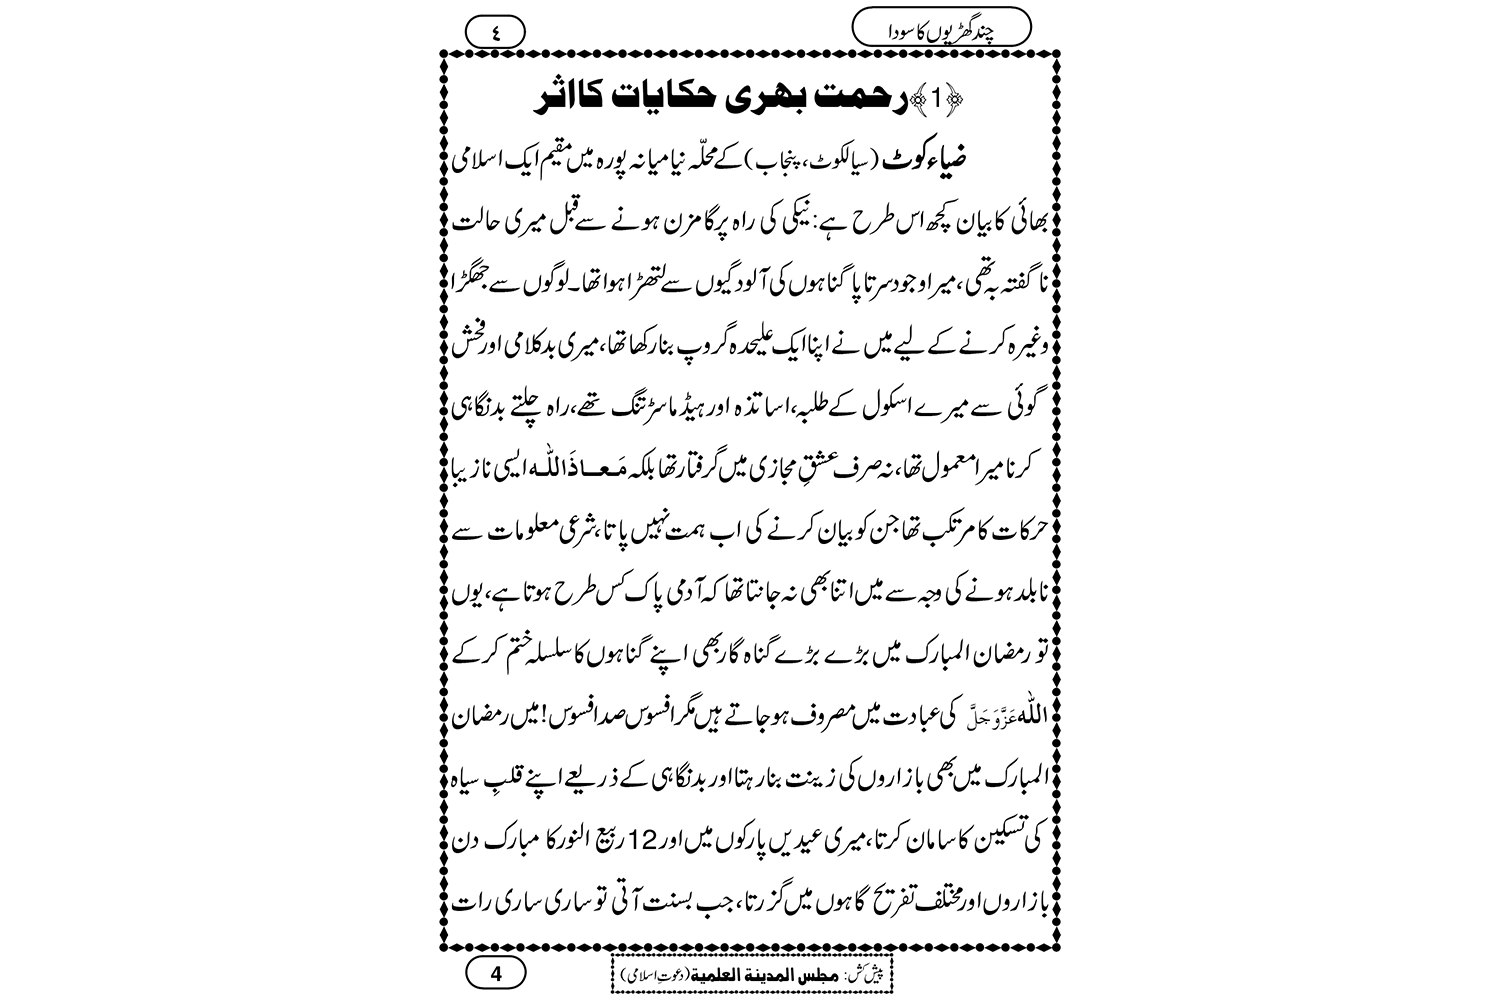 چند گھڑیوں کا سودا
٤
﴿1﴾ رحمت بھری حکایات کا اثر
ضیاء کوٹ (سیالکوٹ، پنجاب) کے محلّہ نیا میانہ پورہ میں مقیم ایک اسلامی
بھائی کا بیان کچھ اس طرح ہے: نیکی کی راہ پر گامزن ہونے سے قبل میری حالت
ناگفتہ بہ تھی، میرا وجود سرتاپا گناہوں کی آلودگیوں سے لتھڑا ہوا تھا۔ لوگوں سے جھگڑا
وغیرہ کرنے کے لیے میں نے اپنا ایک علیحدہ گروپ بنا رکھا تھا، میری بدکلامی اور فحش
گوئی سے میرے اسکول کے طلبہ، اساتذہ اور ہیڈ ماسٹر تنگ تھے، راہ چلتے بدنگاہی
کرنا میرا معمول تھا، نہ صرف عشقِ مجازی میں گرفتار تھا بلکہ مَعاذَاللّٰہ ایسی نازیبا
حرکات کا مرتکب تھا جن کو بیان کرنے کی اب ہمت نہیں پاتا، شرعی معلومات سے
نابلد ہونے کی وجہ سے میں اتنا بھی نہ جانتا تھا کہ آدمی پاک کس طرح ہوتا ہے، یوں
تو رمضان المبارک میں بڑے بڑے گناہ گار بھی اپنے گناہوں کا سلسلہ ختم کر کے
اللّٰہ عَزَّوَجَلَّ کی عبادت میں مصروف ہو جاتے ہیں مگر افسوس صد افسوس! میں رمضان
المبارک میں بھی بازاروں کی زینت بنا رہتا اور بدنگاہی کے ذریعے اپنے قلبِ سیاہ
کی تسکین کا سامان کرتا، میری عیدیں پارکوں میں اور 12 ربیع النور کا مبارک دن
بازاروں اور مختلف تفریح گاہوں میں گزرتا، جب بسنت آتی تو ساری ساری رات
پیش کش: مجلس المدینۃ العلمیۃ (دعوتِ اسلامی)
4